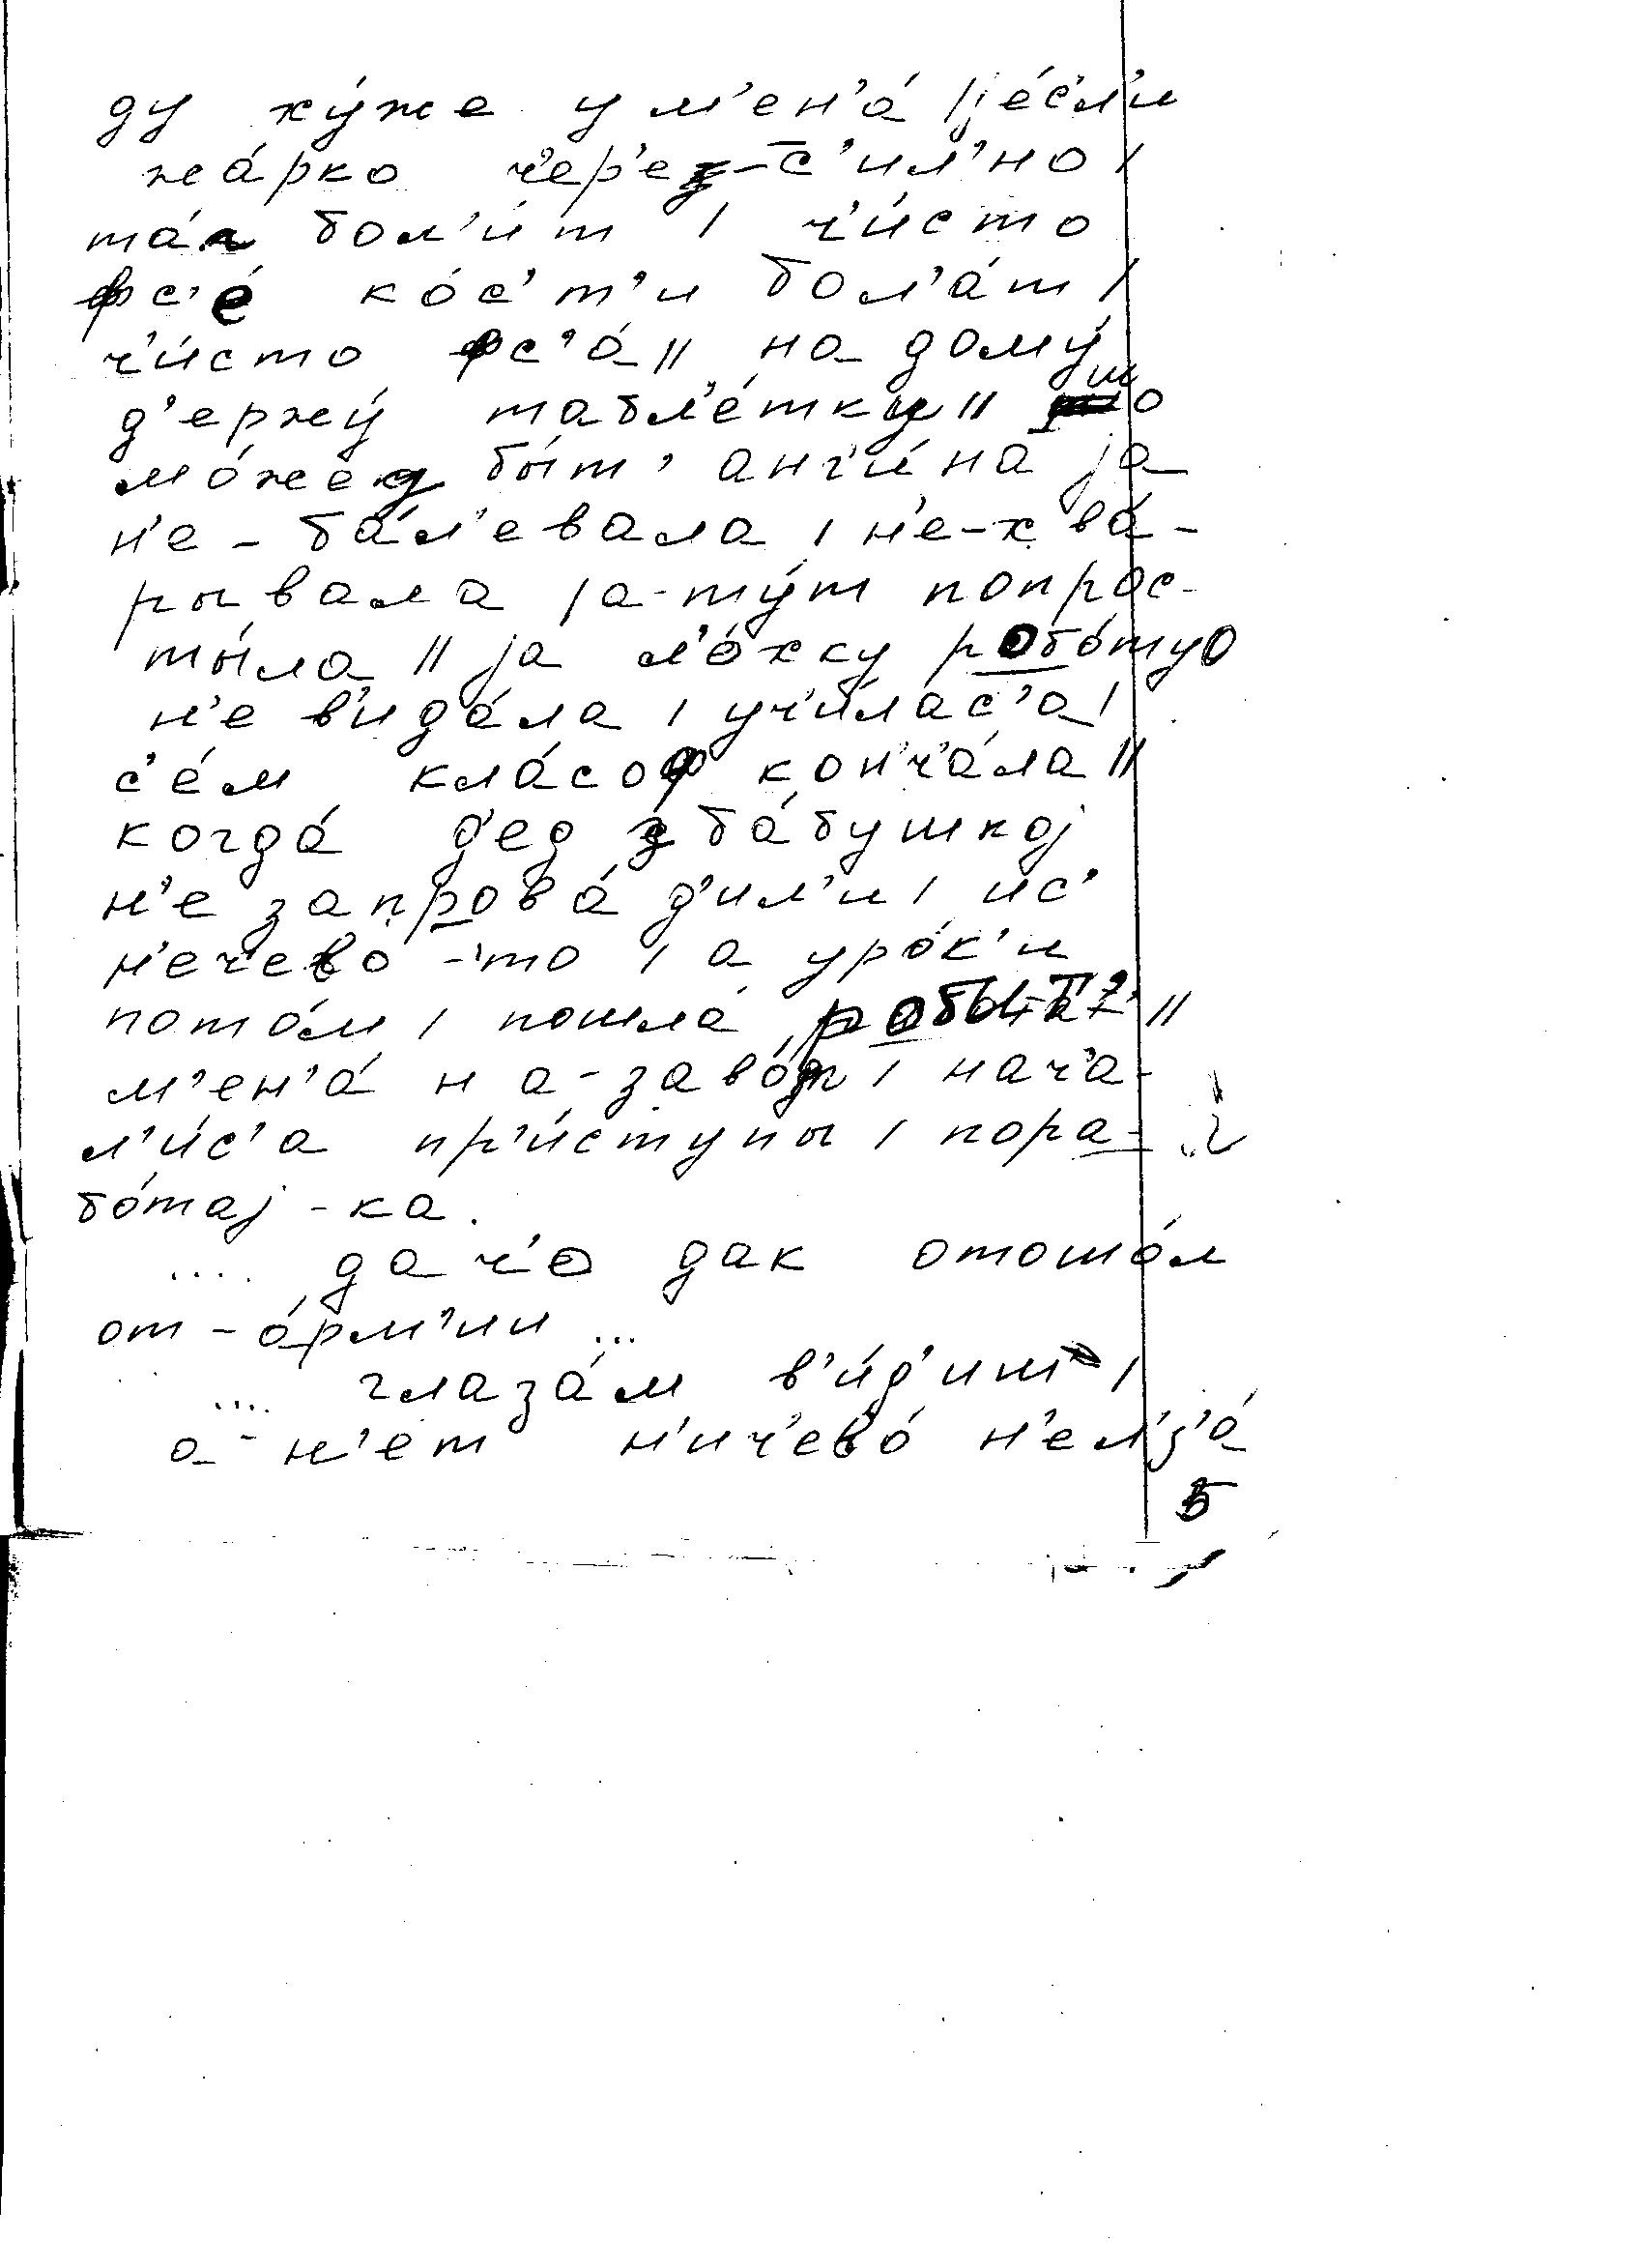 ду ху́же у м'ен'а́ / је́с'л'и
жа́рко ч'ер'ез-с'ил'но /
та́к бол'и́т / ч'и́сто
фс'е́ ко́с'т'и бол'а́т /
ч'и́сто фс'а́ // на дому́
д'ержу́ табл'е́тку // што
мо́жед бы́т' анг'и́на ја
н'е-ба́л'евала / н'е-хва́-
рывала / а-ту́т попрос-
ты́ла // ја л'о́хку робо́тую
н'е в'ида́ла / уч'и́лас'а /
с'е́м кла́соф конч'а́ла //
когда́ д'ед з ба́бушкој
н'е запрова́д'ил'и / ис'
н'ечево-то / а уро́к'и
пото́м / пошла́ робы́т' //
м'ен'а́ на-заво́д / нач'а-
л'и́с'а пр'и́ступы / пора-
бо́тај-ка.
.... да ч'о дак отошо́л
от-а́рм'ии ...
.... глаза́м в'и́д'ит /
а-н'ет н'ич'ево́ н'ел'з'а́
5